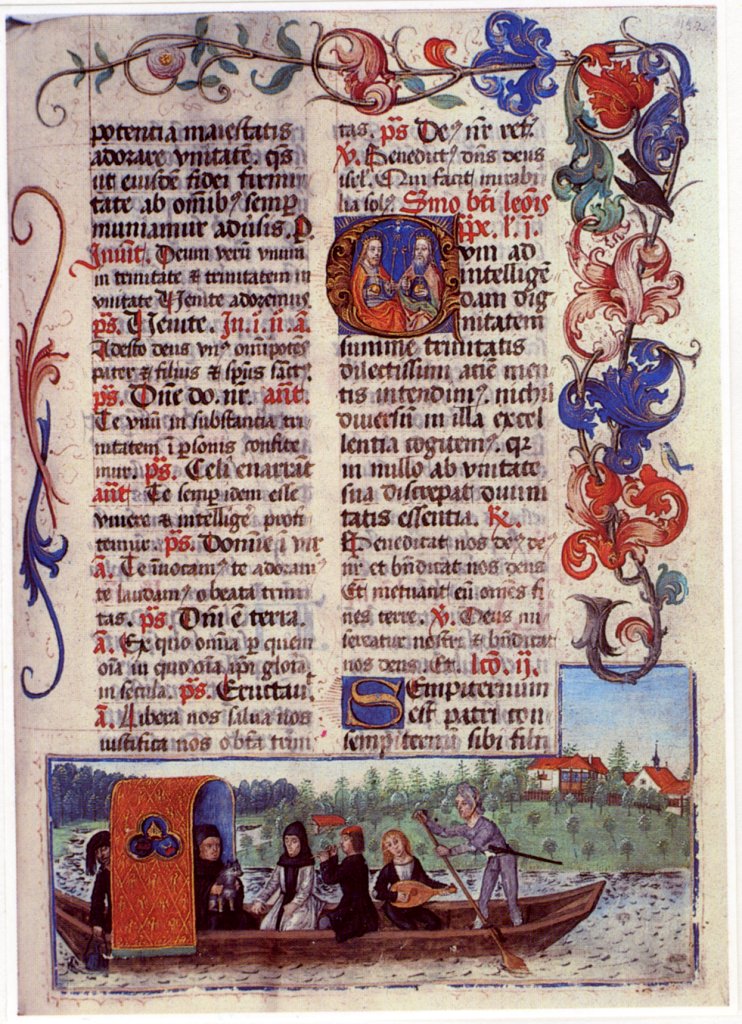 potentia maiestatis
adorare vnitatē. q̄s
ut eiusdē fidei firmi
tate ab omībꝰ semp
muniamur aduīsis. P.
Inuit. Deum verū vnum
in trinitate & trinitatem in
vnitate Venite adoremus.
ps. Venite. In. i. n. a.
Adesto deus vnꝰ om̄ipotēs
pater & filius & sp̄us sāct.
ps. Dn̄e do. nr̄. ant.
Te vnū in substantia tri
nitatem ī p̄sonis confite
mur. ps. Celi enarrāt
ant Te semp idem esse
viuere & intelligē profi
temur. ps. Domine ī vir
a. Te inuocamꝰ te adoramꝰ
te laudamꝰ o beata trini
tas. ps. Dn̄i ē terra.
a. Ex quo om̄ia p quem
oīa in quo oīa ip̄i gloīa
in secula. ps. Eructau.
a. Libera nos salua nos
iustifica nos o bt̄a trini
tas. ps Deꝰ nr̄ ref.
v. Benedictꝰ dn̄s deus
isrl. Qui facit mirabi
lia solꝰ. Smo bt̄i leōis
ppe. l. i.
um ad
intelligē
dam dig
nitatem
summe trinitatis
dilectissimi aciē men
tis intendimꝰ. nichil
diuersū in illa excel
lentia cogitemꝰ. qꝛ
in nullo ab vnitate
sua discrepat diuini
tatis essentia. R.
Benedicat nos deꝰ deꝰ
nr̄ et bn̄dicat nos deus
Et metuant eū om̄es fi
nes terre. v. Deus mi
sereatur nostri & bn̄dicat
nos deus. Et. lco. ij.
Sempiternum
est patri con
sempiternū sibi filii